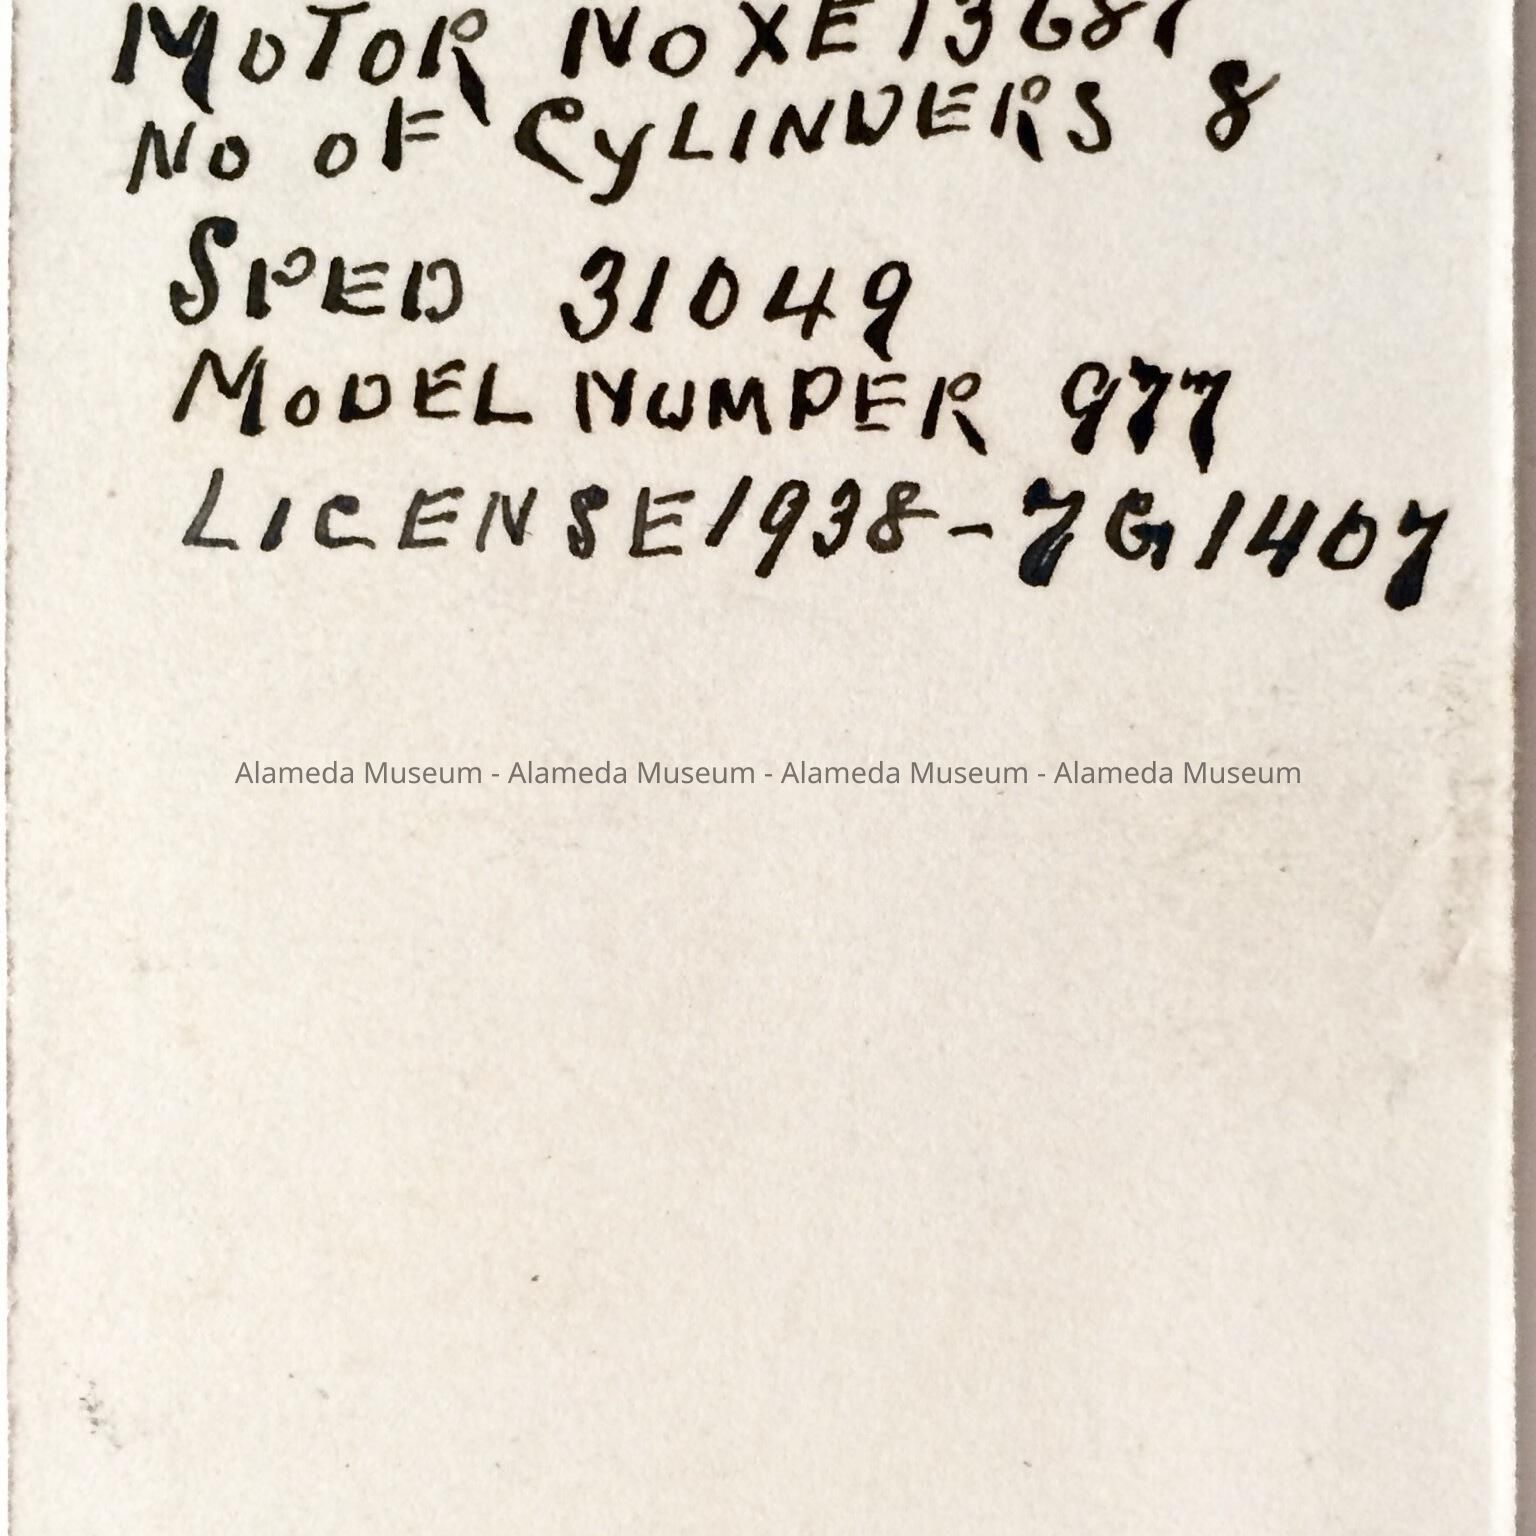 MOTOR NO XE13687
NO OF CYLINDERS 8
SPED 31049
MODEL NUMDER 977
LICENSE 1938-7G1407
Alameda Museum - Alameda Museum - Alameda Museum - Alameda Museum